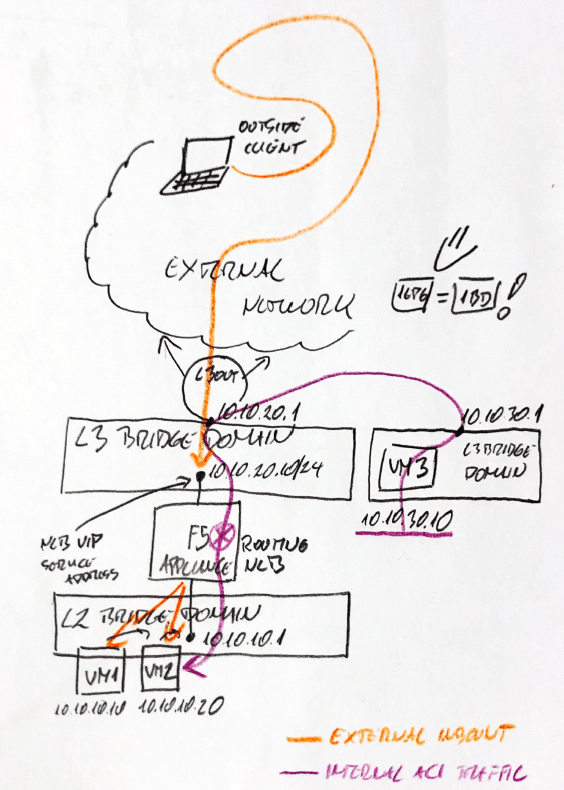 OUTSIDE
CLIENT
EXTERNAL
NETWORK
1EPG = 1BD !
L3OUT
10.10.20.1
10.10.30.1
L3 BRIDGE DOMAIN
L3 BRIDGE
DOMAIN
VM3
10.10.20.10/24
10.10.30.10
NLB VIP
SERVICE
ADDRESS
F5
APPLIANCE
ROUTING
NLB
L2 BRIDGE DOMAIN
10.10.10.1
VM1
VM2
10.10.10.10
10.10.10.20
EXTERNAL
INTERNAL ACI TRAFFIC